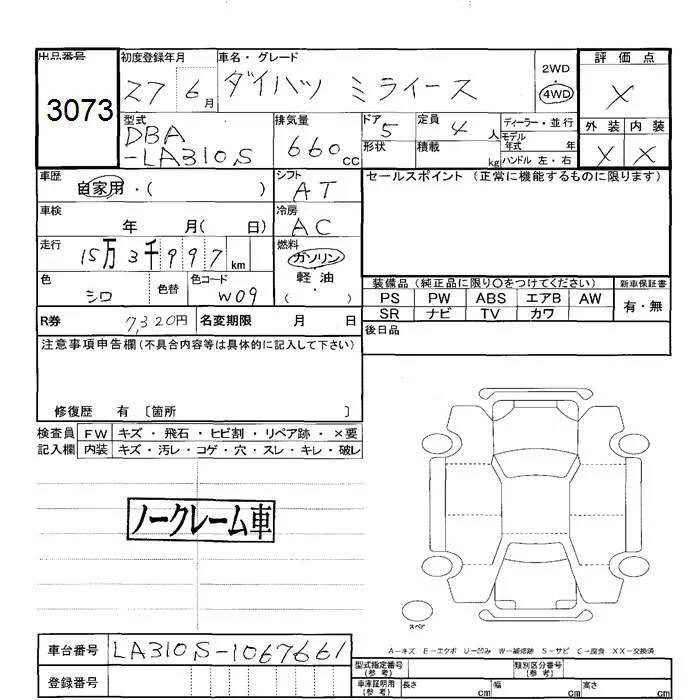 出品番号 初度登録年月 車名・グレード 評価点
3073 27 6月 ダイハツ ミライース 2WD 4WD X
型式 排気量 ドア 定員 ディーラー・並行 外装 内装
DBA 660cc 5 4人 モデル年式 年 X X
-LA310S 形状 積載 kg ハンドル 左・右
車歴 自家用・( ) シフト AT セールスポイント (正常に機能するものに限ります)
車検 年 月( 日) 冷房 AC
走行 15万3千997km 燃料 ガソリン
軽油・( )
色 シロ 色替 色コード W09 装備品(純正品に限り〇をつけてください) 新車保証書
PS PW ABS エアB AW 有・無
SR ナビ TV カワ
R券 7,320円 名変期限 月 日 後日品
注意事項申告欄(不具合内容等は具体的に記入して下さい)
修復歴 有 〔箇所 〕
検査員 FW キズ・飛石・ヒビ割・リペア跡・×要
記入欄 内装 キズ・汚レ・コゲ・穴・スレ・キレ・破レ
ノークレーム車
スペア
A-キズ E-エクボ U-凹み W-補修跡 S-サビ C-腐食 XX-交換済
車台番号 LA310S-1067661
登録番号
型式指定番号(参考) 類別区分番号(参考)
車庫証明用(参考) 長さ cm 幅 cm 高さ cm